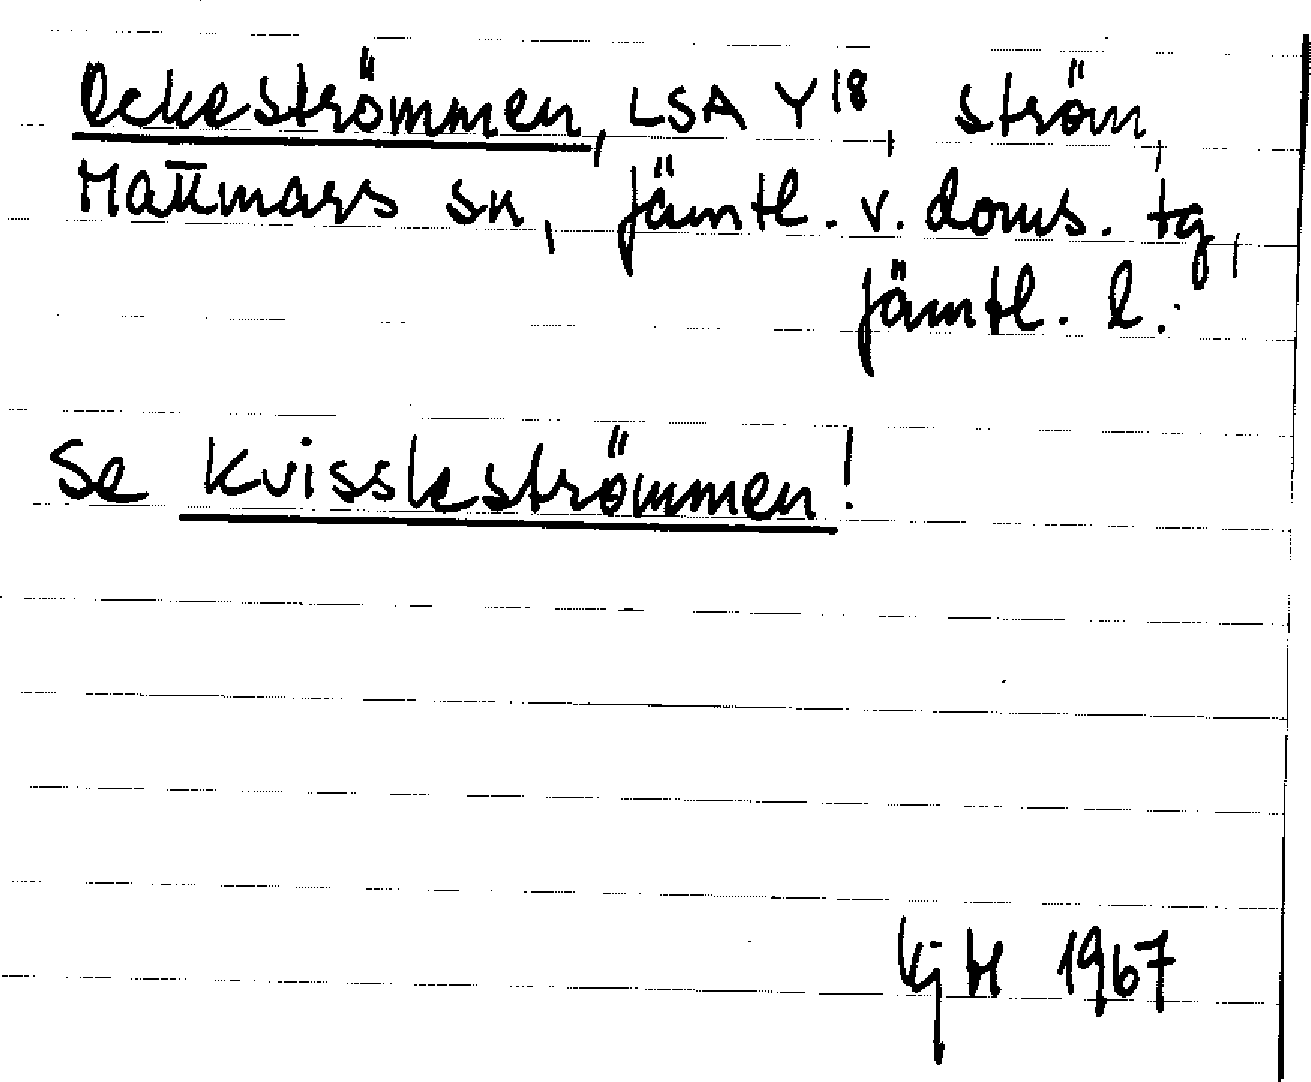 Ockeströmmen, LSA Y18, ström,
Mattmars sn, Jämtl. v. doms. tg,
Jämtl. l.
Se Kvissleströmmen!
Kj H 1967